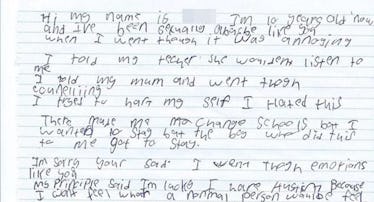 Hi my name is I'm 10 years old now
and I've been sexually abuse like you
when I went though it was annoying
I told my techer she wouldent listen to
me
I told my mum and went thogh
counselling
I tryed to hurt my self I Hated this
There made me change schools but I
wanted to stay but the boy who did this
to me got to stay.
Im sorry your sad. I went thogh emotions
like you
My principle said Im lucky I have Austism because
I cant feel what a normal person would feel